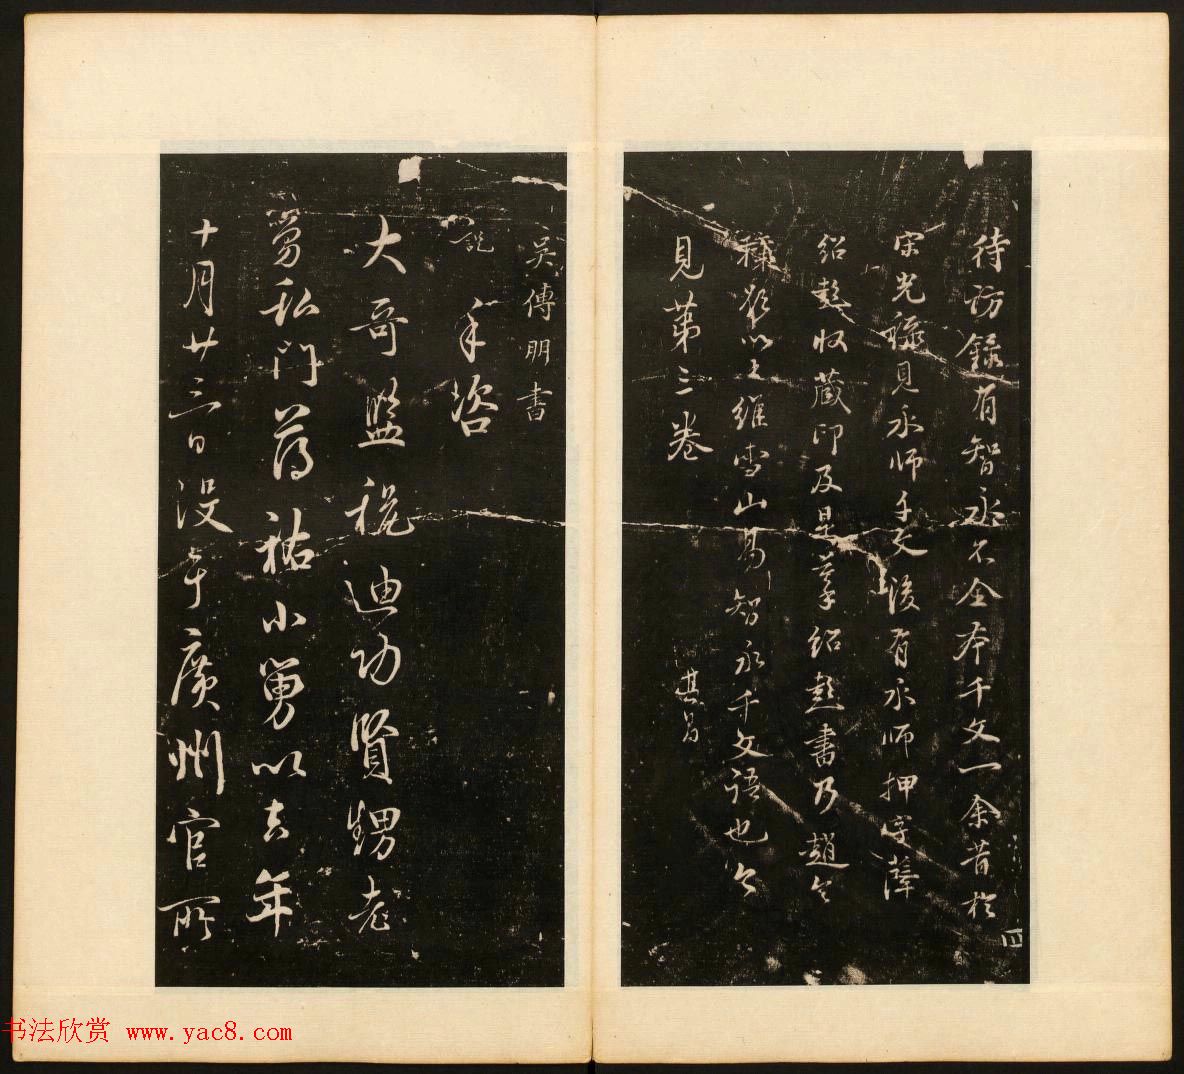 待訪錄有智永不全本千文一余昔於
宋光祿見永師千文後有永師押字薛
紹彭收藏印及是蹟紹彭書乃趙令
以王維雪山易智永千文語也今
見第三卷
其昌
四
吳傅朋書
說
手咨
大哥監稅迪功賢甥老
舅私門薄祜小舅以去年
十月廿三日沒于廣州官所
书法欣赏 www.yac8.com